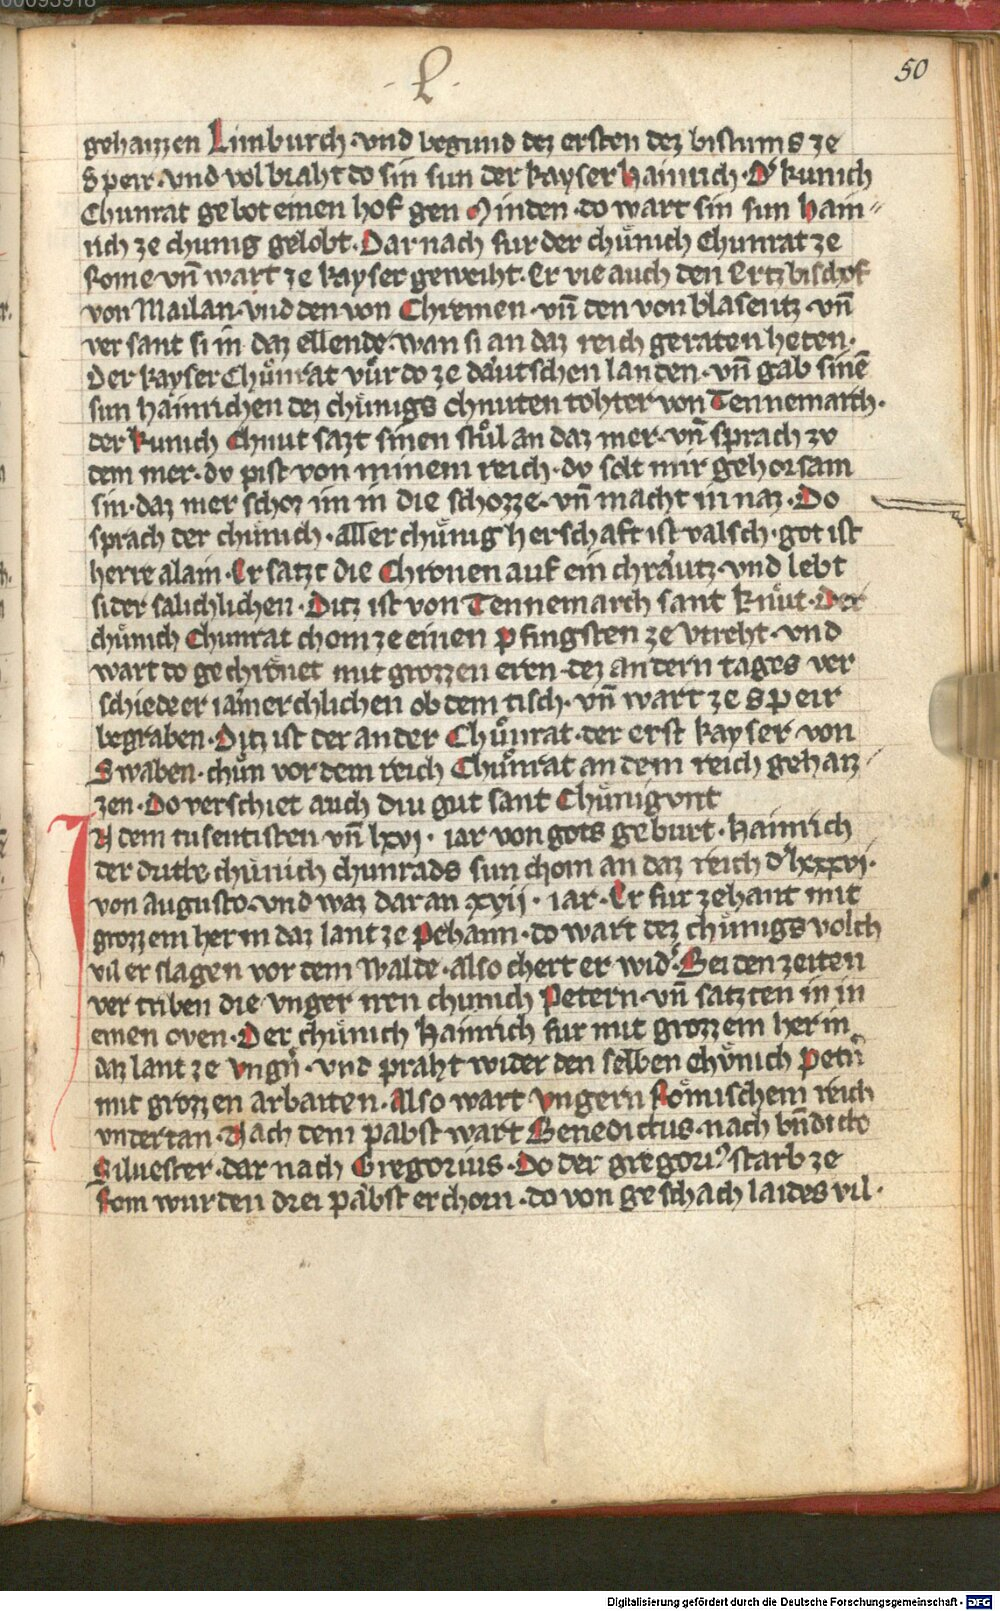 00093918
· L ·
50
gehaizzen Limburch · vnd begund dez ersten dez bistums ze
Speir · vnd volbraht do sin sun der kayser hainrich · D' kunich
Chunrat gebot einen hof gen Minden · do wart sin sun hain⸗
rich ze chunig gelobt · Dar nach fur der chuͤnich Chunrat ze
Rome vñ wart ze kayser geweiht · Er vie auch den Ertzbischof
von Mailan · vnd den von Chremen · vñ den von blasentz · vñ
versant si in daz ellende · wan si an daz reich geraten heten ·
Der kayser Chuͦnrat vuͦr do ze daͤutschen landen · vñ gab sinē
sun haͤinrichen dez chuͤnigs chnuten tohter von Tennemarch ·
der kunich Chnut sazt sinen stuͦl an daz mer · vñ sprach zv
dem mer · dv pist von minem reich · dv solt mir gehorsam
sin · daz mer schoz im in die schozze · vñ macht in naz · Do
sprach der chuͤnich · aller chuͤnig herschaft ist valsch · got ist
herre alain · Er satzt die Chronen auf ein chraͤutz · vnd lebt
sider salichlichen · Ditz ist von Tennemarch sant knuͦt · Der
chuͤnich Chunrat chom ze einen pfingsten ze vtreht · vnd
wart do gechroͤnet mit grozzen eren · dez andern tages ver
schiede er iamerchlichen ob dem tisch · vñ wart ze Speir
begraben · Ditz ist der ander Chuͦnrat · der erst kayser · von
Swaben · chuͤn vor dem reich Chuͦnrat an dem reich gehaiz⸗
zen · Do verschiet auch diu gut sant Chuͤnigvnt
IN dem tusentisten · vñ lxvj · iar von gots geburt · hainrich
der dritte chuͤnich chunrads sun chom an daz reich d' lxxxvj ·
von augusto · vnd waz dar an xvij · iar · Er fur zehant mit
grozzem her in daz lant ze pehaim · do wart dez chuͤnigs volch
vil erslagen vor dem walde · also chert er wid' · Bei den zeiten
vertriben die vnger iren chunich Petern · vñ satzten in in
einen oven · Der chuͤnich hainrich fur mit grozzem her in
daz lant ze vngn̄ · vnd praht wider den selben chuͤnich pet'n
mit grozzen arbaiten · also wart vngern Roͤmischem reich
vndertan · Nach dem pabst wart Benedictus · nach bn̄dicto
Siluester · dar nach Gregorius · Do der gregori' starb ze
Rom wurden drei paͤbst erchorn · do von geschach laides vil ·
Digitalisierung gefördert durch die Deutsche Forschungsgemeinschaft · DFG